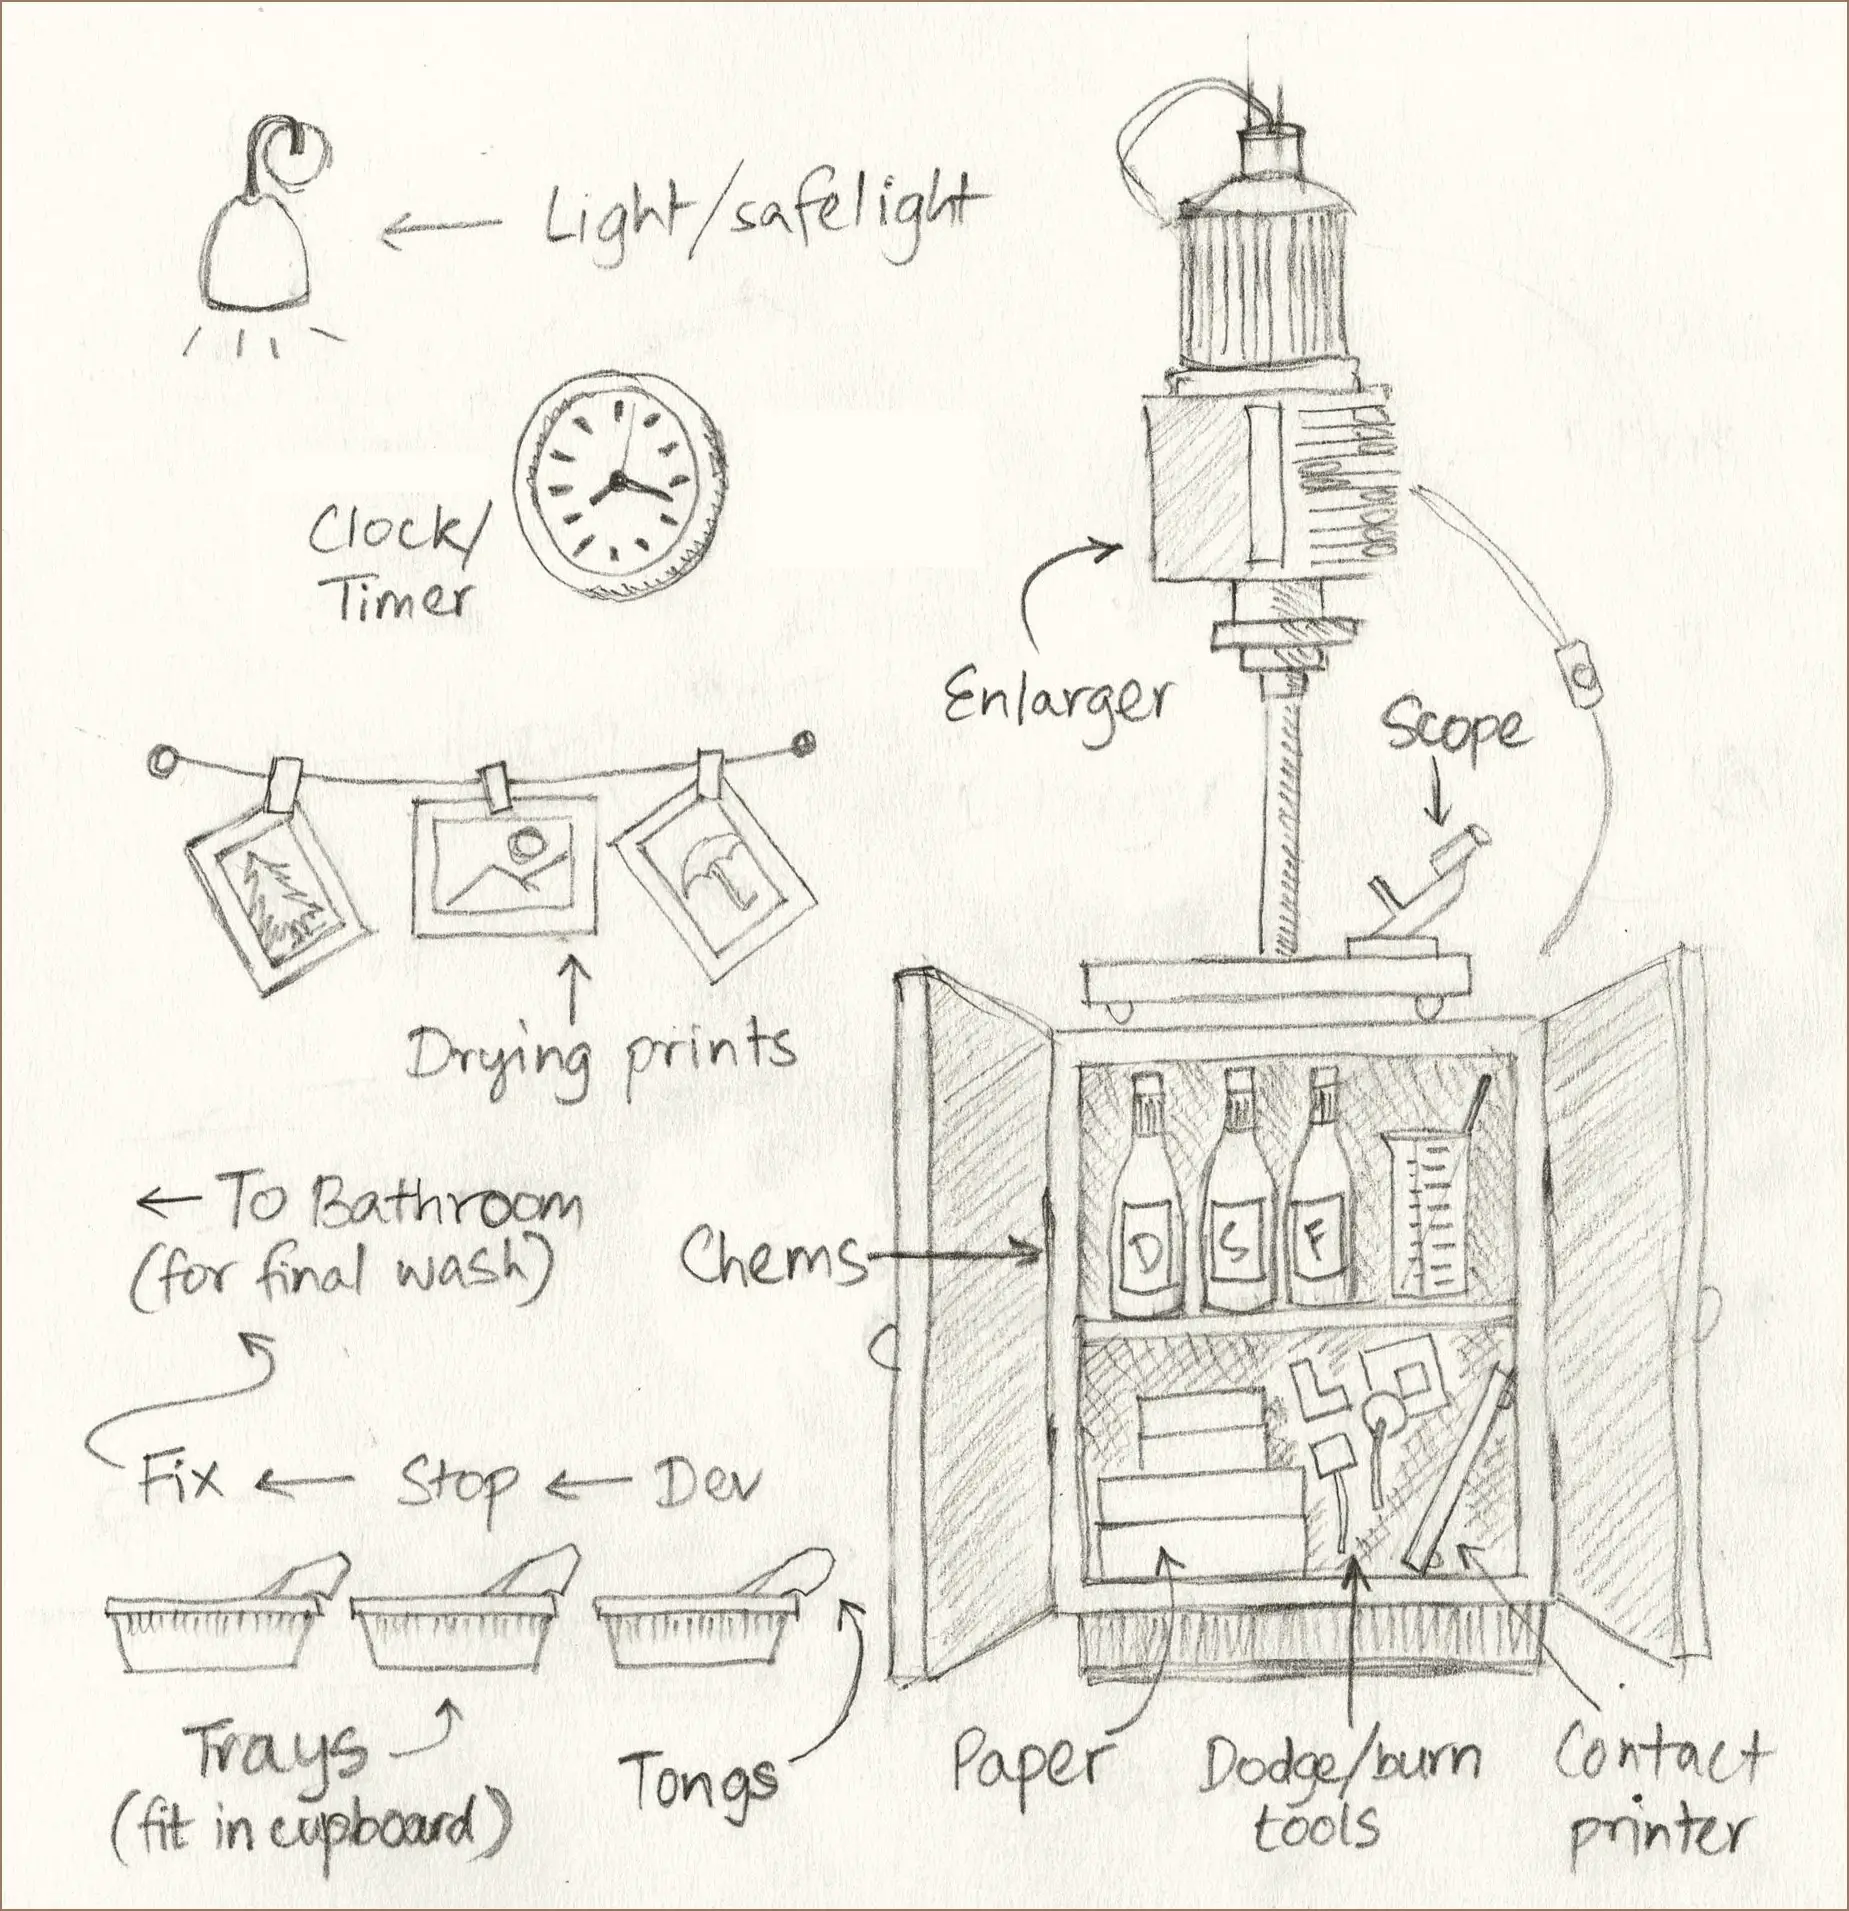 Light/safelight
Clock/
Timer
Enlarger
Scope
Drying prints
← To Bathroom
(for final wash)
Chems
D
S
F
Fix ← Stop ← Dev
Trays
(fit in cupboard)
Tongs
Paper
Dodge/burn
tools
Contact
printer